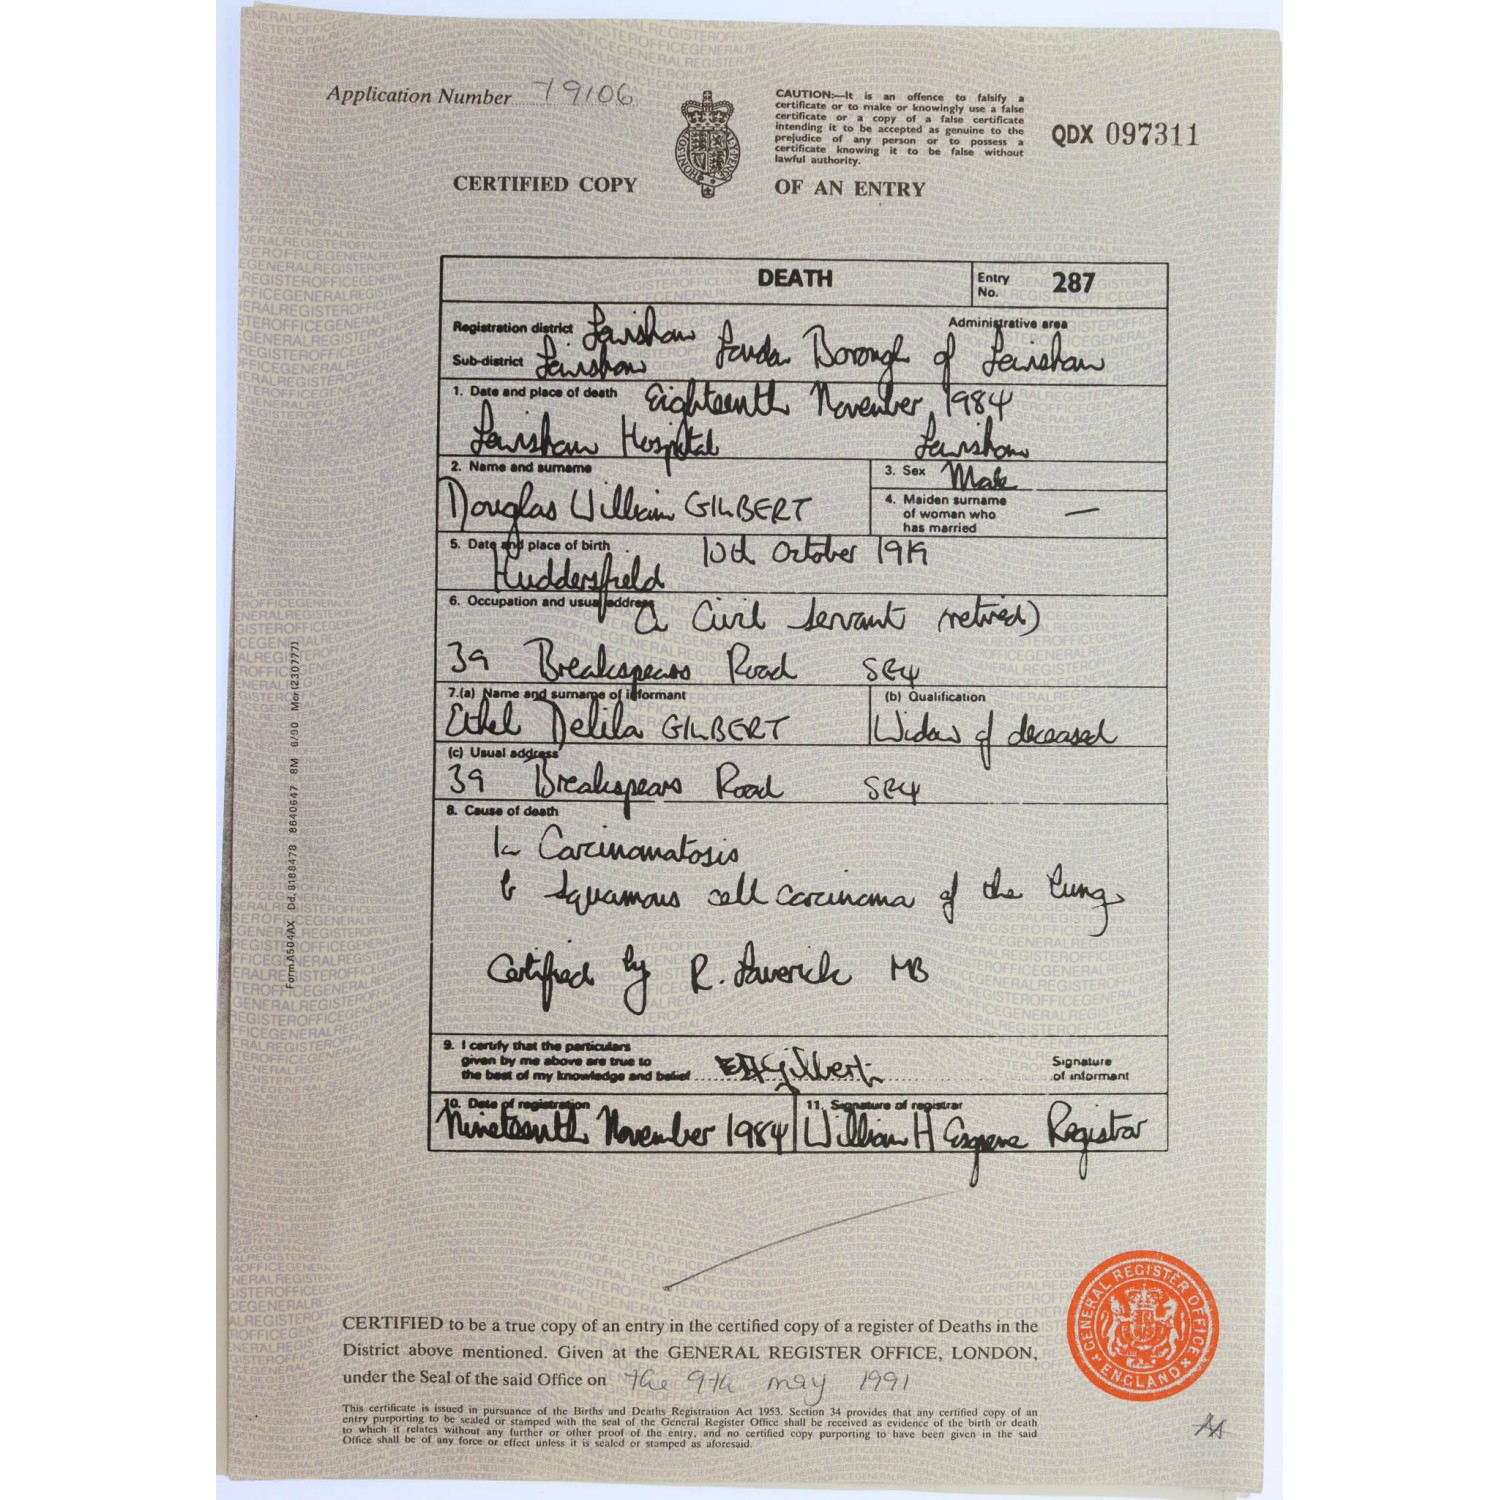 Application Number 79106
CAUTION:—It is an offence to falsify a
certificate or to make or knowingly use a false
certificate or a copy of a false certificate
intending it to be accepted as genuine to the
prejudice of any person or to possess a
certificate knowing it to be false without
lawful authority.
QDX 097311
CERTIFIED COPY OF AN ENTRY
DEATH
Entry No. 287
Registration district Lewisham
Administrative area
Sub-district Lewisham London Borough of Lewisham
1. Date and place of death Eighteenth November 1984
Lewisham Hospital Lewisham
2. Name and surname
Douglas William GILBERT
3. Sex Male
4. Maiden surname
of woman who
has married —
5. Date and place of birth 10th October 1919
Huddersfield
6. Occupation and usual address a Civil Servant (retired)
39 Breakspears Road SE4
7.(a) Name and surname of informant
Ethel Delila GILBERT
(b) Qualification
Widow of deceased
(c) Usual address
39 Breakspears Road SE4
8. Cause of death
1a Carcinomatosis
b Squamous cell carcinoma of the lung
Certified by R. Laverick MB
9. I certify that the particulars
given by me above are true to
the best of my knowledge and belief E D Gilbert
Signature
of informant
10. Date of registration
Nineteenth November 1984
11. Signature of registrar
William H Registrar
CERTIFIED to be a true copy of an entry in the certified copy of a register of Deaths in the
District above mentioned. Given at the GENERAL REGISTER OFFICE, LONDON,
under the Seal of the said Office on the 9th may 1991
This certificate is issued in pursuance of the Births and Deaths Registration Act 1953. Section 34 provides that any certified copy of an
entry purporting to be sealed or stamped with the seal of the General Register Office shall be received as evidence of the birth or death
to which it relates without any further or other proof of the entry, and no certified copy purporting to have been given in the said
Office shall be of any force or effect unless it is sealed or stamped as aforesaid.
GENERAL REGISTER OFFICE
ENGLAND
Form A504AX Dd. 8188478 8640647 8M 6/90 Mcr(230777)